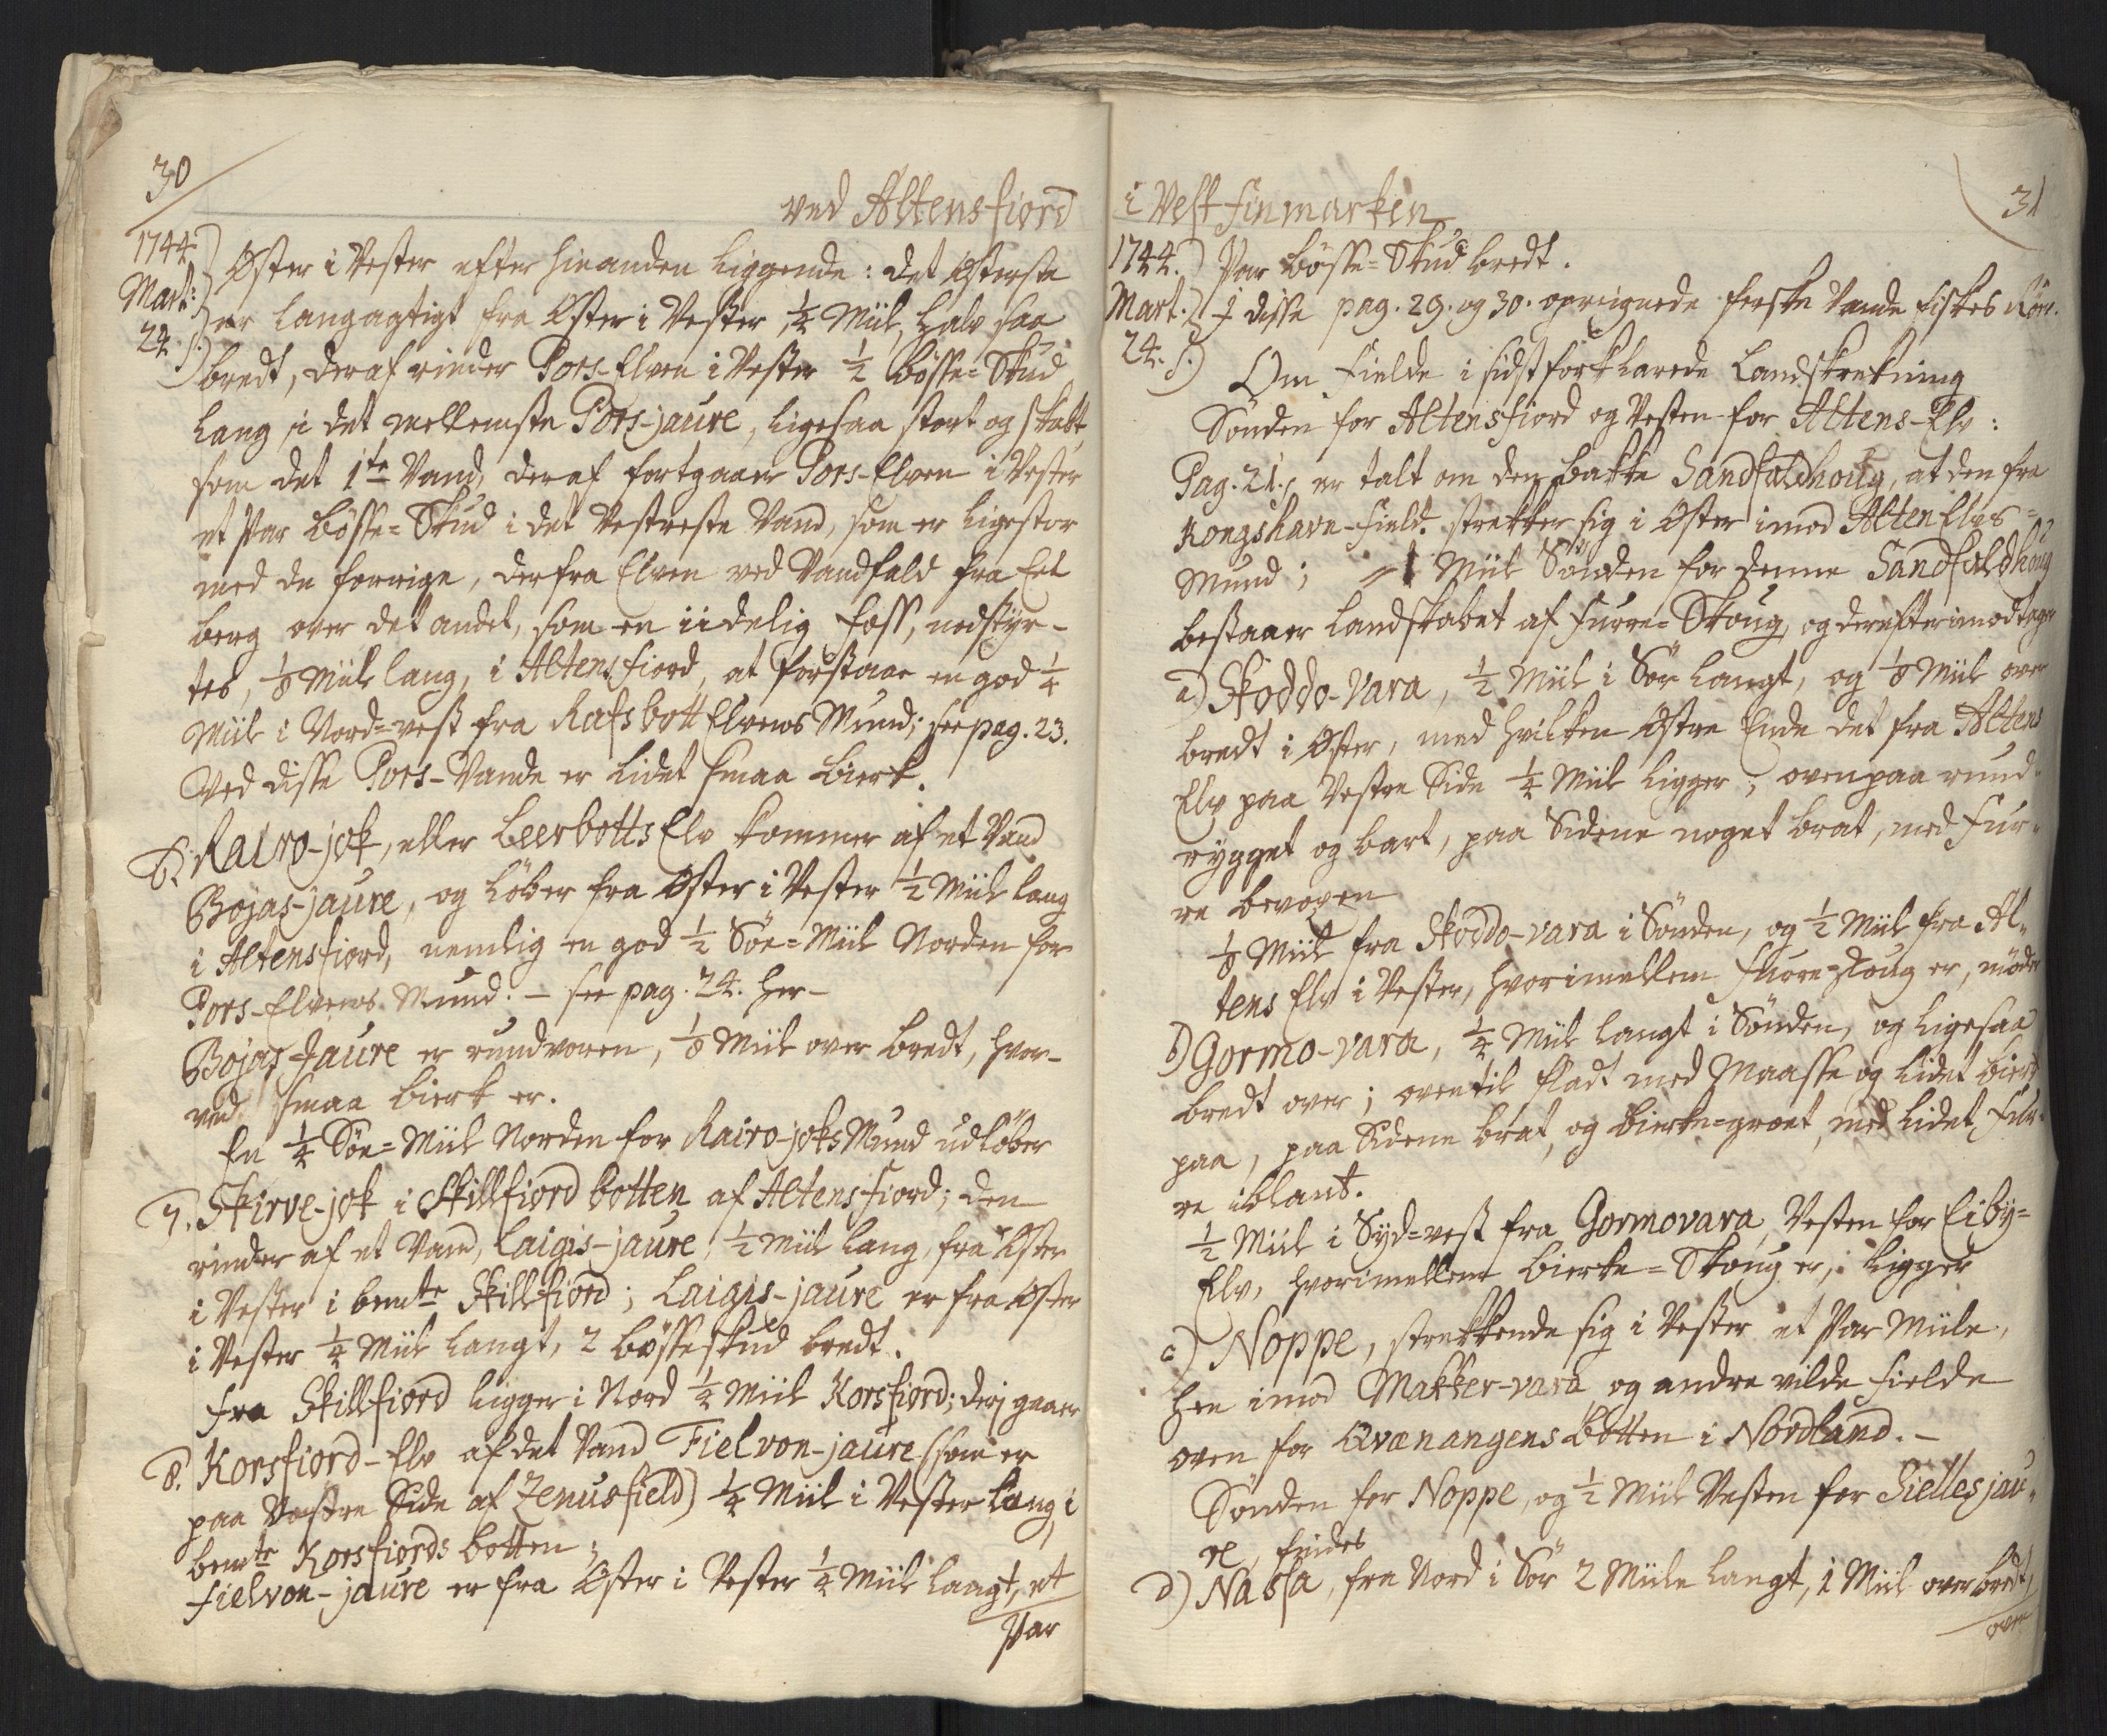 30
ved Altensfiord
1744.
Mart:
24.
Øster i Vester efter hinanden liggende: det Østerste
er langagtigt fra Øster i Vester, 1/4 Miil, halv saa
bredt, deraf rinder Pors-Elven i Vester 1/2 bösse-Skud
lang, i det mellemste Pors-jaure, ligesaa stort og skabt,
som det 1te Vand, deraf fortgaaer Pors-Elven i Vester
et Par bösse-Skud i det Vestreste Vand, som er ligestor
med de forrige, derfra Elven ved Vandfald fra Eet
berg over det andet, som en iidelig foss, nedstyr-
tes, 1/8 Miil lang, i Altensfiord, at forstaae en god 1/4
Miil i Nord-vest fra Rafsbott Elvens Mund; see pag. 23.
Ved disse Pors-Vande er lidet smaa bierk.
6. Rairo-jok, eller Leerbotts Elv kommer af et Vand
Bojas-jaure, og löber fra Øster i Vester 1/2 Miil lang
i Altensfiord, nemlig en god 1/2 Söe-Miil Norden for
Pors-Elvens Mund. - see pag. 24. her-
Bojas-Jaure er rundvoren, 1/8 Miil over bredt, hvor-
ved smaa bierk er.
En 1/4 Söe-Miil Norden for Rairo-joks Mund udlöber
7. Skirve-jok i Skillfiord botten af Altensfiord; den
rinder af et Vand, Laigis-jaure, 1/2 Miil lang, fra Øster
i Vester i bemte Skillfiord; Laigis-jaure er fra Øster
i Vester 1/4 Miil langt, 2 bösseskud bredt.
Fra Skillfiord ligger i Nord 1/4 Miil Korsfiord; deri gaaer
8. Korsfiord-Elv af det Vand Fielvon-jaure (som er
paa Vestre Side af Zenusfield) 1/4 Miil i Vester lang, i
bemte Korsfiords botten;
Fielvon-jaure er fra Øster i Vester 1/4 Miil langt, et
Par
i Vest Finmarken
31
1744.
Mart.
24.
Par bösse-Skud bredt.
I disse pag. 29. og 30. opregnede ferske Vande fiskes Rör.
Om Fielde i sidst forklarede Landstrekning
Sönden for Altensfiord og Vesten for Altens-Elv:
Pag. 21. er talt om den bakke Sandfaldhoug, at den fra
Kongshavn-field strekker sig i Øster imod Alten Elvs-
Mund; 1 Miil Sönden for denne Sandfaldhoug
bestaaer Landskabet af Furre-Skoug, og derefter imodtager
a) Skoddo-Vara, 1/2 Miil i Sör langt, og 1/8 Miil over
bredt i Øster, med hvilken Østre Ende det fra Altens
Elv paa Vestre Side 1/4 Miil ligger; oven paa rund-
rygget og bart, paa Sidene noget brat, med Fur-
re bevoxen
1/8 Miil fra Skoddo-vara i Sönden, og 1/2 Miil fra Al-
tens Elv i Vester, hvorimellem Furre-Skoug er, möder
b) Gormo-vara, 1/4 Miil langt i Sönden, og ligesaa
bredt over; oventil fladt med Maasse og lidet bierk
paa, paa Sidene brat, og bierke-groet, med lidet Fur-
re iblant.
1/2 Miil i Syd-vest fra Gormovara, Vesten for Eiby-
Elv, hvorimellem bierke-Skoug er, ligger
c) Noppe, strekkende sig i Vester et Par Miile,
hen imod Makker-vara og andre vilde Fielde
oven for Qvænangens botten i Nordland. -
Sönden for Noppe, og 1/2 Miil Vesten for Sielles jau-
re, findes
d) Nassa, fra Nord i Sör 2 Miile langt, 1 Miil over bredt,
over